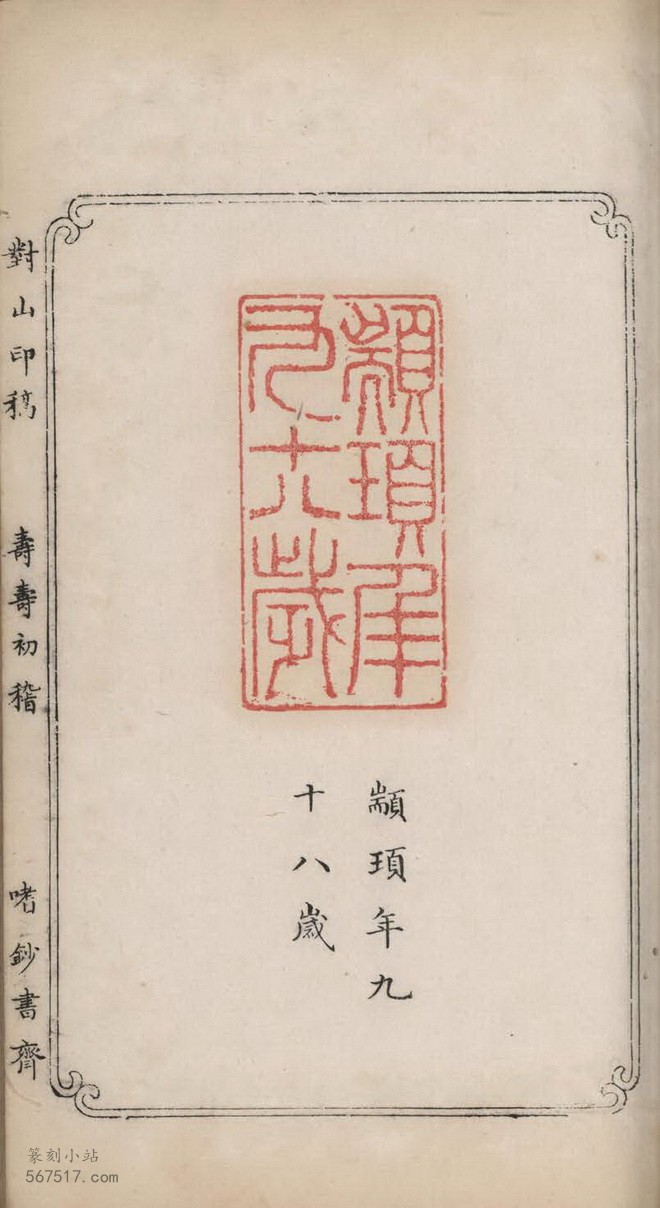 顓頊年
九十八歲
顓頊年九
十八歲
對山印稿 壽壽初稽 啫鈔書齋
篆刻小站
567517.com